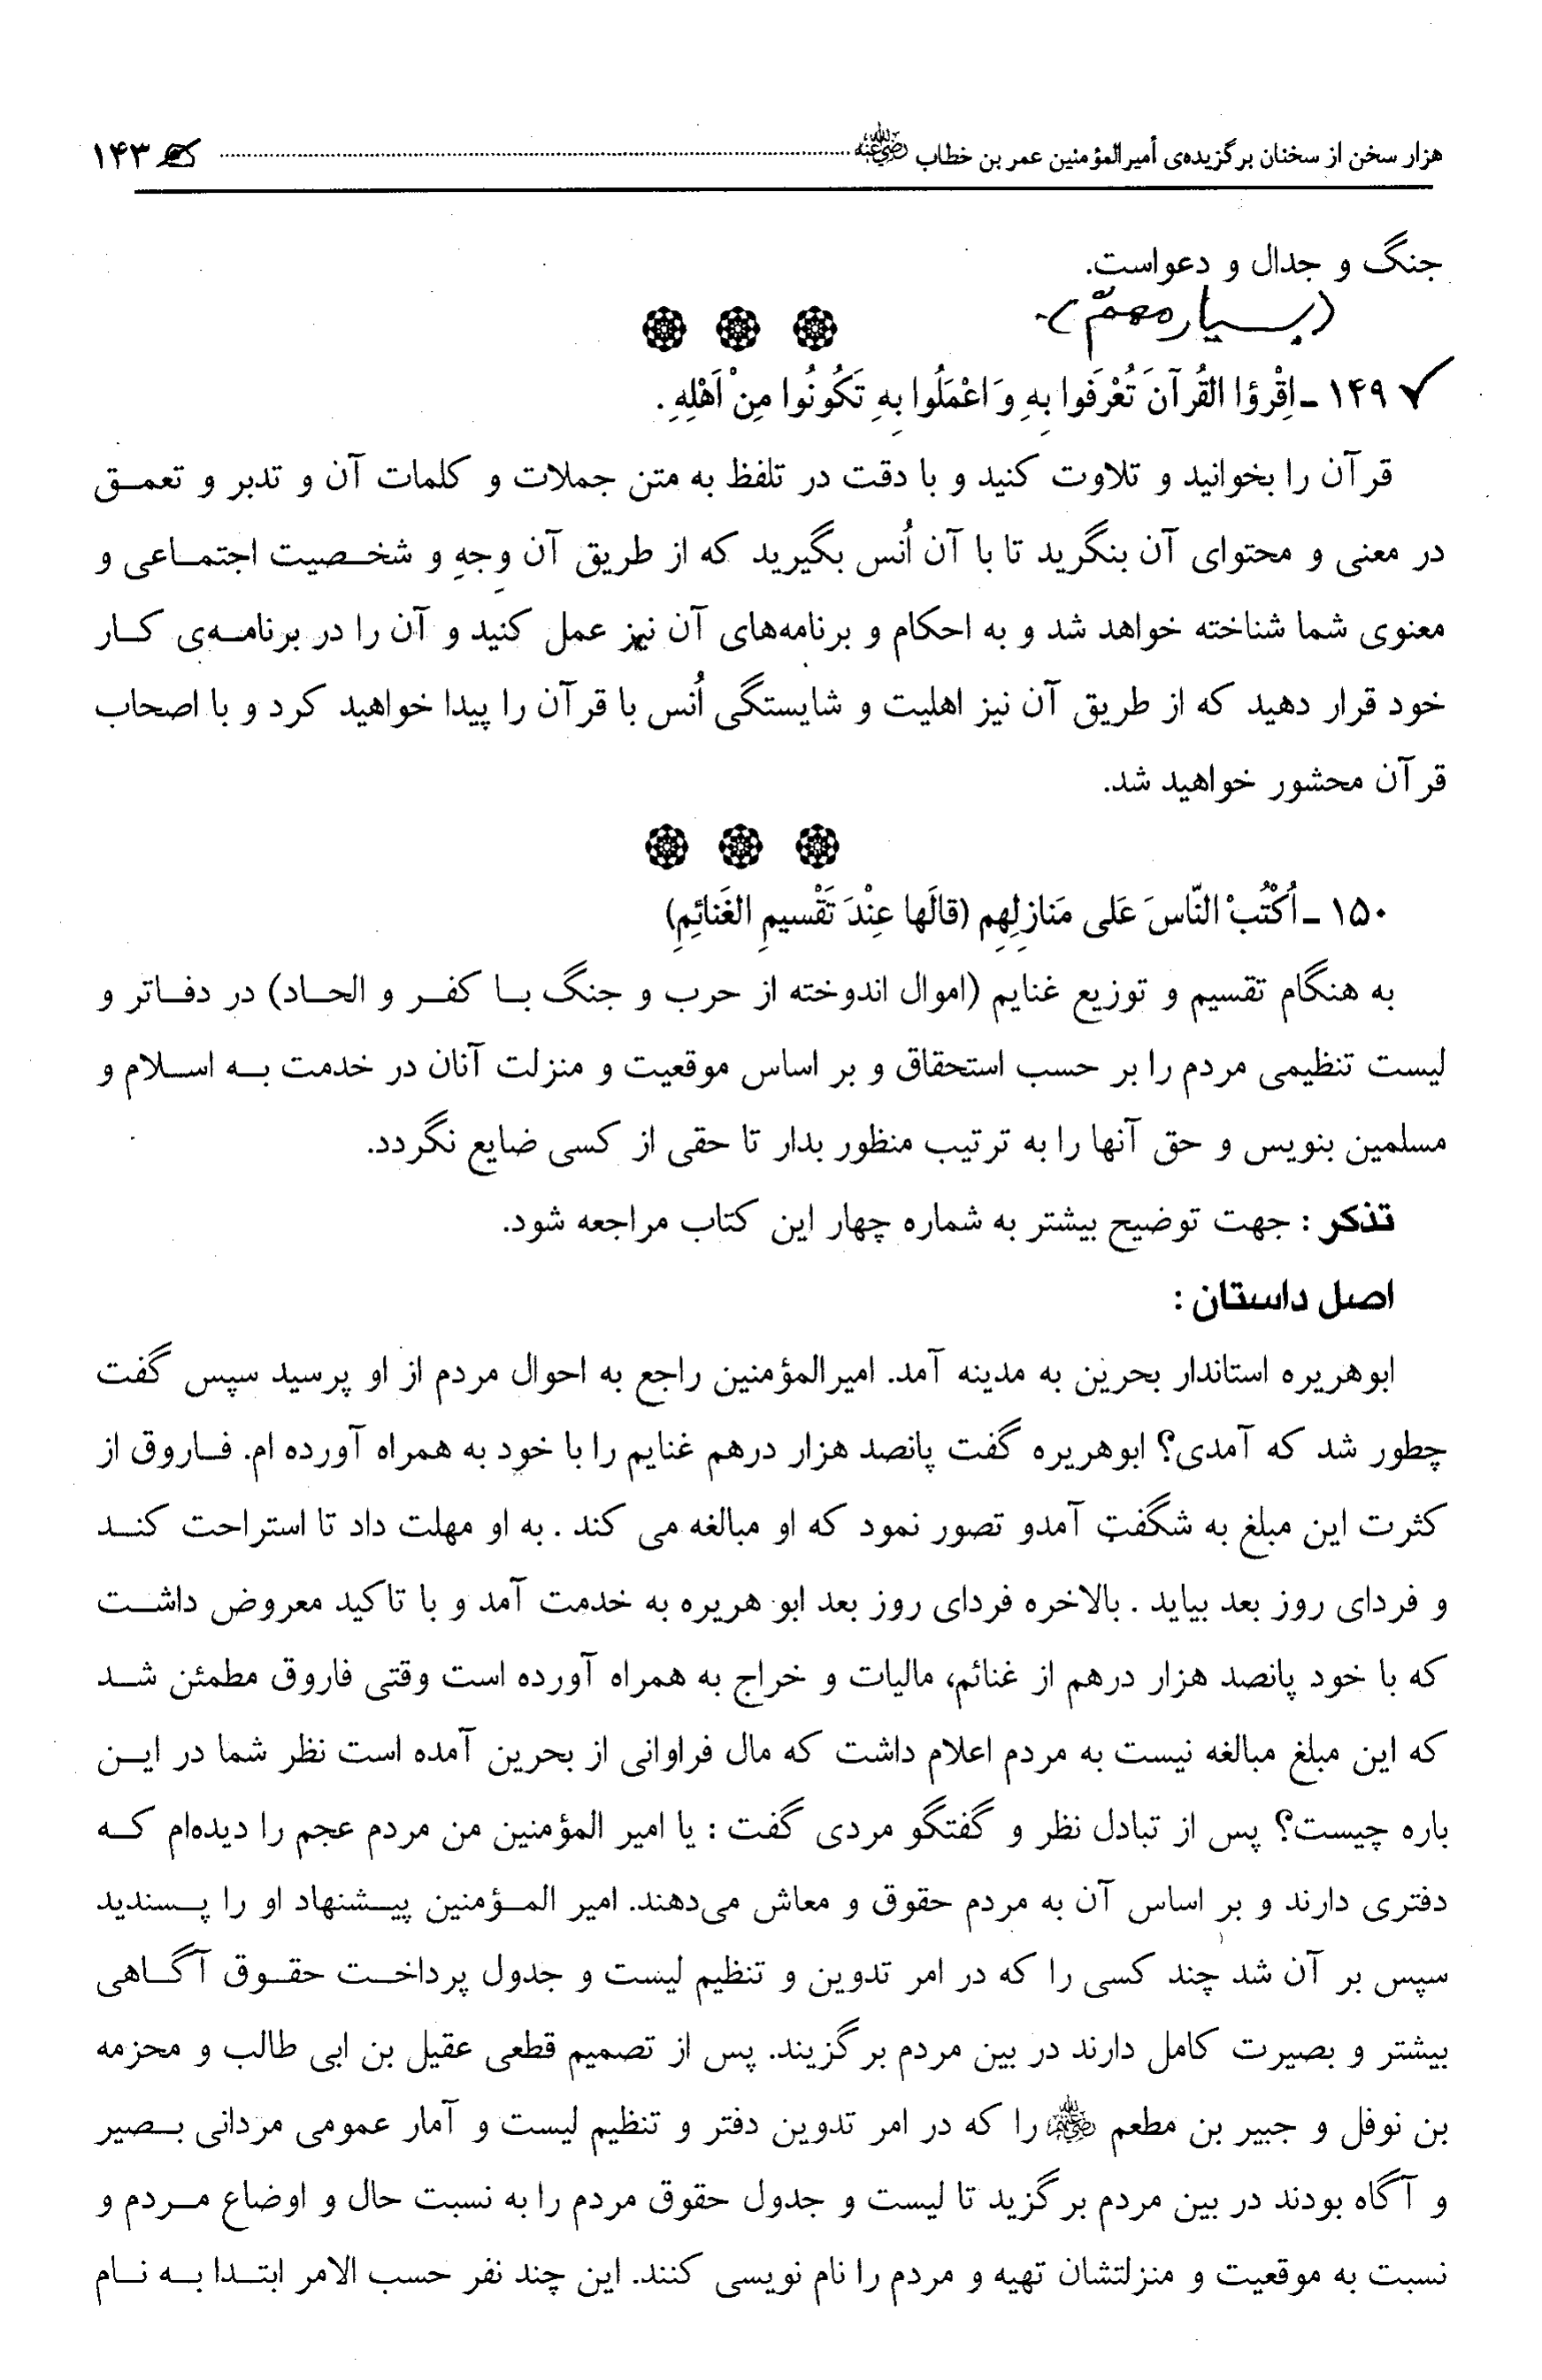 هزار سخن از سخنان برگزیده‌ی أمیرالمؤمنین عمر بن خطاب ﷺ ۱۴۳
جنگ و جدال و دعواست.
(بسیار مهمّ).
۱۴۹ ـ اِقْرؤا القُرآنَ تُعْرَفوا بِهِ وَ اعْمَلُوا بِهِ تَكُونُوا مِنْ اَهْلِهِ .
قرآن را بخوانید و تلاوت کنید و با دقت در تلفظ به متن جملات و کلمات آن و تدبر و تعمـق
در معنی و محتوای آن بنگرید تا با آن اُنس بگیرید که از طریق آن وجهِ و شخـصیت اجتمـاعی و
معنوی شما شناخته خواهد شد و به احکام و برنامه‌های آن نیز عمل کنید و آن را در برنامـه‌ی کـار
خود قرار دهید که از طریق آن نیز اهلیت و شایستگی اُنس با قرآن را پیدا خواهید کرد و با اصحاب
قرآن محشور خواهید شد.
۱۵۰ ـ اُكْتُبْ النّاسَ عَلى مَنازِلِهِم (قالَها عِنْدَ تَقْسیمِ الغَنائِمِ)
به هنگام تقسیم و توزیع غنایم (اموال اندوخته از حرب و جنگ بـا کفـر و الحـاد) در دفـاتر و
لیست تنظیمی مردم را بر حسب استحقاق و بر اساس موقعیت و منزلت آنان در خدمت بـه اسـلام و
مسلمین بنویس و حق آنها را به ترتیب منظور بدار تا حقی از کسی ضایع نگردد.
تذکر : جهت توضیح بیشتر به شماره چهار این کتاب مراجعه شود.
اصل داستان :
ابوهریره استاندار بحرین به مدینه آمد. امیرالمؤمنین راجع به احوال مردم از او پرسید سپس گفت
چطور شد که آمدی؟ ابوهریره گفت پانصد هزار درهم غنایم را با خود به همراه آورده ام. فـاروق از
کثرت این مبلغ به شگفت آمدو تصور نمود که او مبالغه می کند . به او مهلت داد تا استراحت کنـد
و فردای روز بعد بیاید . بالاخره فردای روز بعد ابو هریره به خدمت آمد و با تاکید معروض داشـت
که با خود پانصد هزار درهم از غنائم، مالیات و خراج به همراه آورده است وقتی فاروق مطمئن شـد
که این مبلغ مبالغه نیست به مردم اعلام داشت که مال فراوانی از بحرین آمده است نظر شما در ایـن
باره چیست؟ پس از تبادل نظر و گفتگو مردی گفت : یا امیر المؤمنین من مردم عجم را دیده‌ام کـه
دفتری دارند و بر اساس آن به مردم حقوق و معاش می‌دهند. امیر المـؤمنین پیـشنهاد او را پـسندید
سپس بر آن شد چند کسی را که در امر تدوین و تنظیم لیست و جدول پرداخـت حقـوق آگـاهی
بیشتر و بصیرت کامل دارند در بین مردم برگزیند. پس از تصمیم قطعی عقیل بن ابی طالب و محزمه
بن نوفل و جبیر بن مطعم را که در امر تدوین دفتر و تنظیم لیست و آمار عمومی مردانی بـصیر
و آگاه بودند در بین مردم برگزید تا لیست و جدول حقوق مردم را به نسبت حال و اوضاع مـردم و
نسبت به موقعیت و منزلتشان تهیه و مردم را نام نویسی کنند. این چند نفر حسب الامر ابتـدا بـه نـام